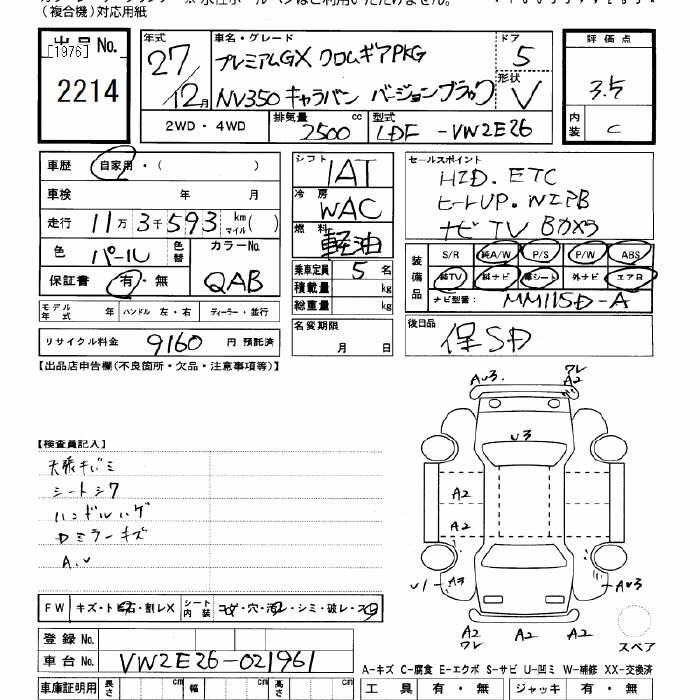 (複合機)対応用紙
出品No.
[1976]
2214
年式 27/12月
車名・グレード
プレミアムGX クロムギアPKG
NV350 キャラバン バージョンブラック
ドア 5
形状 V
2WD・4WD
排気量 2500 cc
型式 LDF-VW2E26
評価点
3.5
内装 C
車歴 自家用・( )
車検 年 月
走行 11万3千593 km マイル( )
色 パール 色替
カラーNo. QAB
保証書 有・無
シフト IAT
冷房 WAC
燃料 軽油
乗車定員 5 名
積載量 kg
総重量 kg
セールスポイント
HID. ETC
ヒートUP.
ナビ TV Bカメラ
装備品
S/R 純A/W P/S P/W ABS
純TV 純ナビ 革シート 外ナビ エアB
ナビ型番: MM115D-A
モデル年式 年 ハンドル 左・右 ディーラー・並行
リサイクル料金 9160 円 預託済
名変期限
月 日
後日品
保SD
【出品店申告欄(不良箇所・欠品・注意事項等)】
AU3.
ワレ
A2
U3
【検査員記入】
天張キバミ
シートシワ
ハンドルハゲ
Dミラーキズ
A.U
A2
A2
U1
A3
AU3
A2
ワレ
A2
スペア
FW キズ・トビ石・割レX
シート内装 コゲ・穴・汚レ・シミ・破レ・スレ
登録No.
車台No. VW2E26-021961
A-キズ C-腐食 E-エクボ S-サビ U-凹ミ W-補修 XX-交換済
車庫証明用 長さ cm 幅 cm 高さ cm
工具 有・無 ジャッキ 有・無